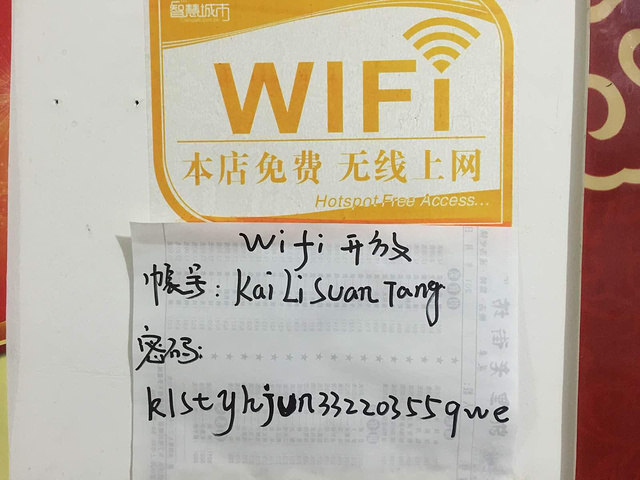 智慧城市
WIFi
本店免费 无线上网
Hotspot Free Access...
wifi 开放
帐号: KaiLiSuanTang
密码:
klstyhjun33220355qwe